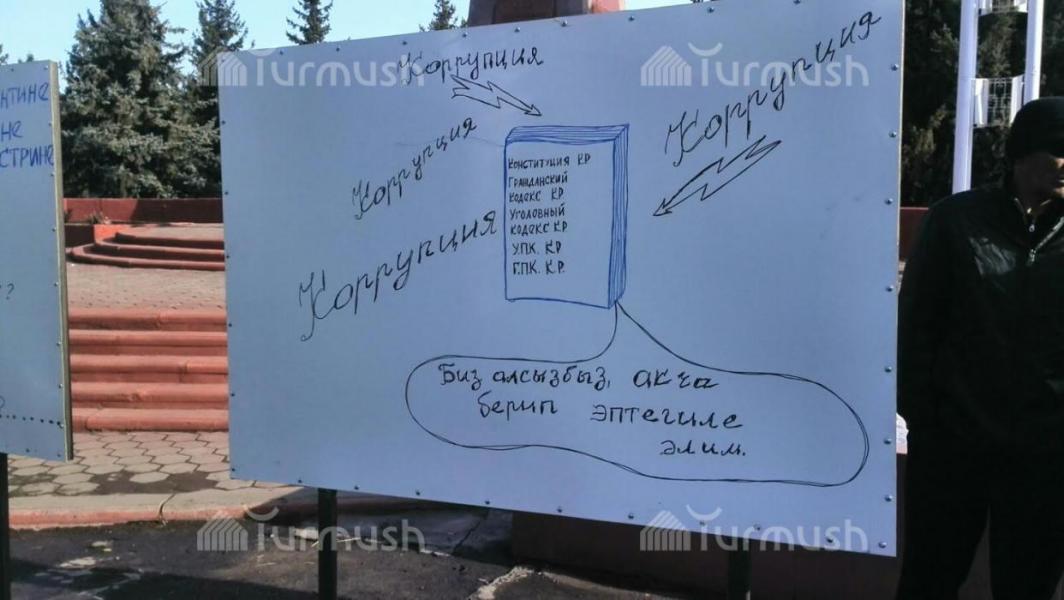 ктине
не
стрине
?
Коррупция
Коррупция
Коррупция
Коррупция
Конституция КР
Гранданский
кодекс КР
Уголовный
кодекс КР
У.ПК. КР
Г.ПК. К.Р.
Биз алсызбыз, акча
берип эптегиле
элим.
Turmush
Turmush
Turmush
Turmush